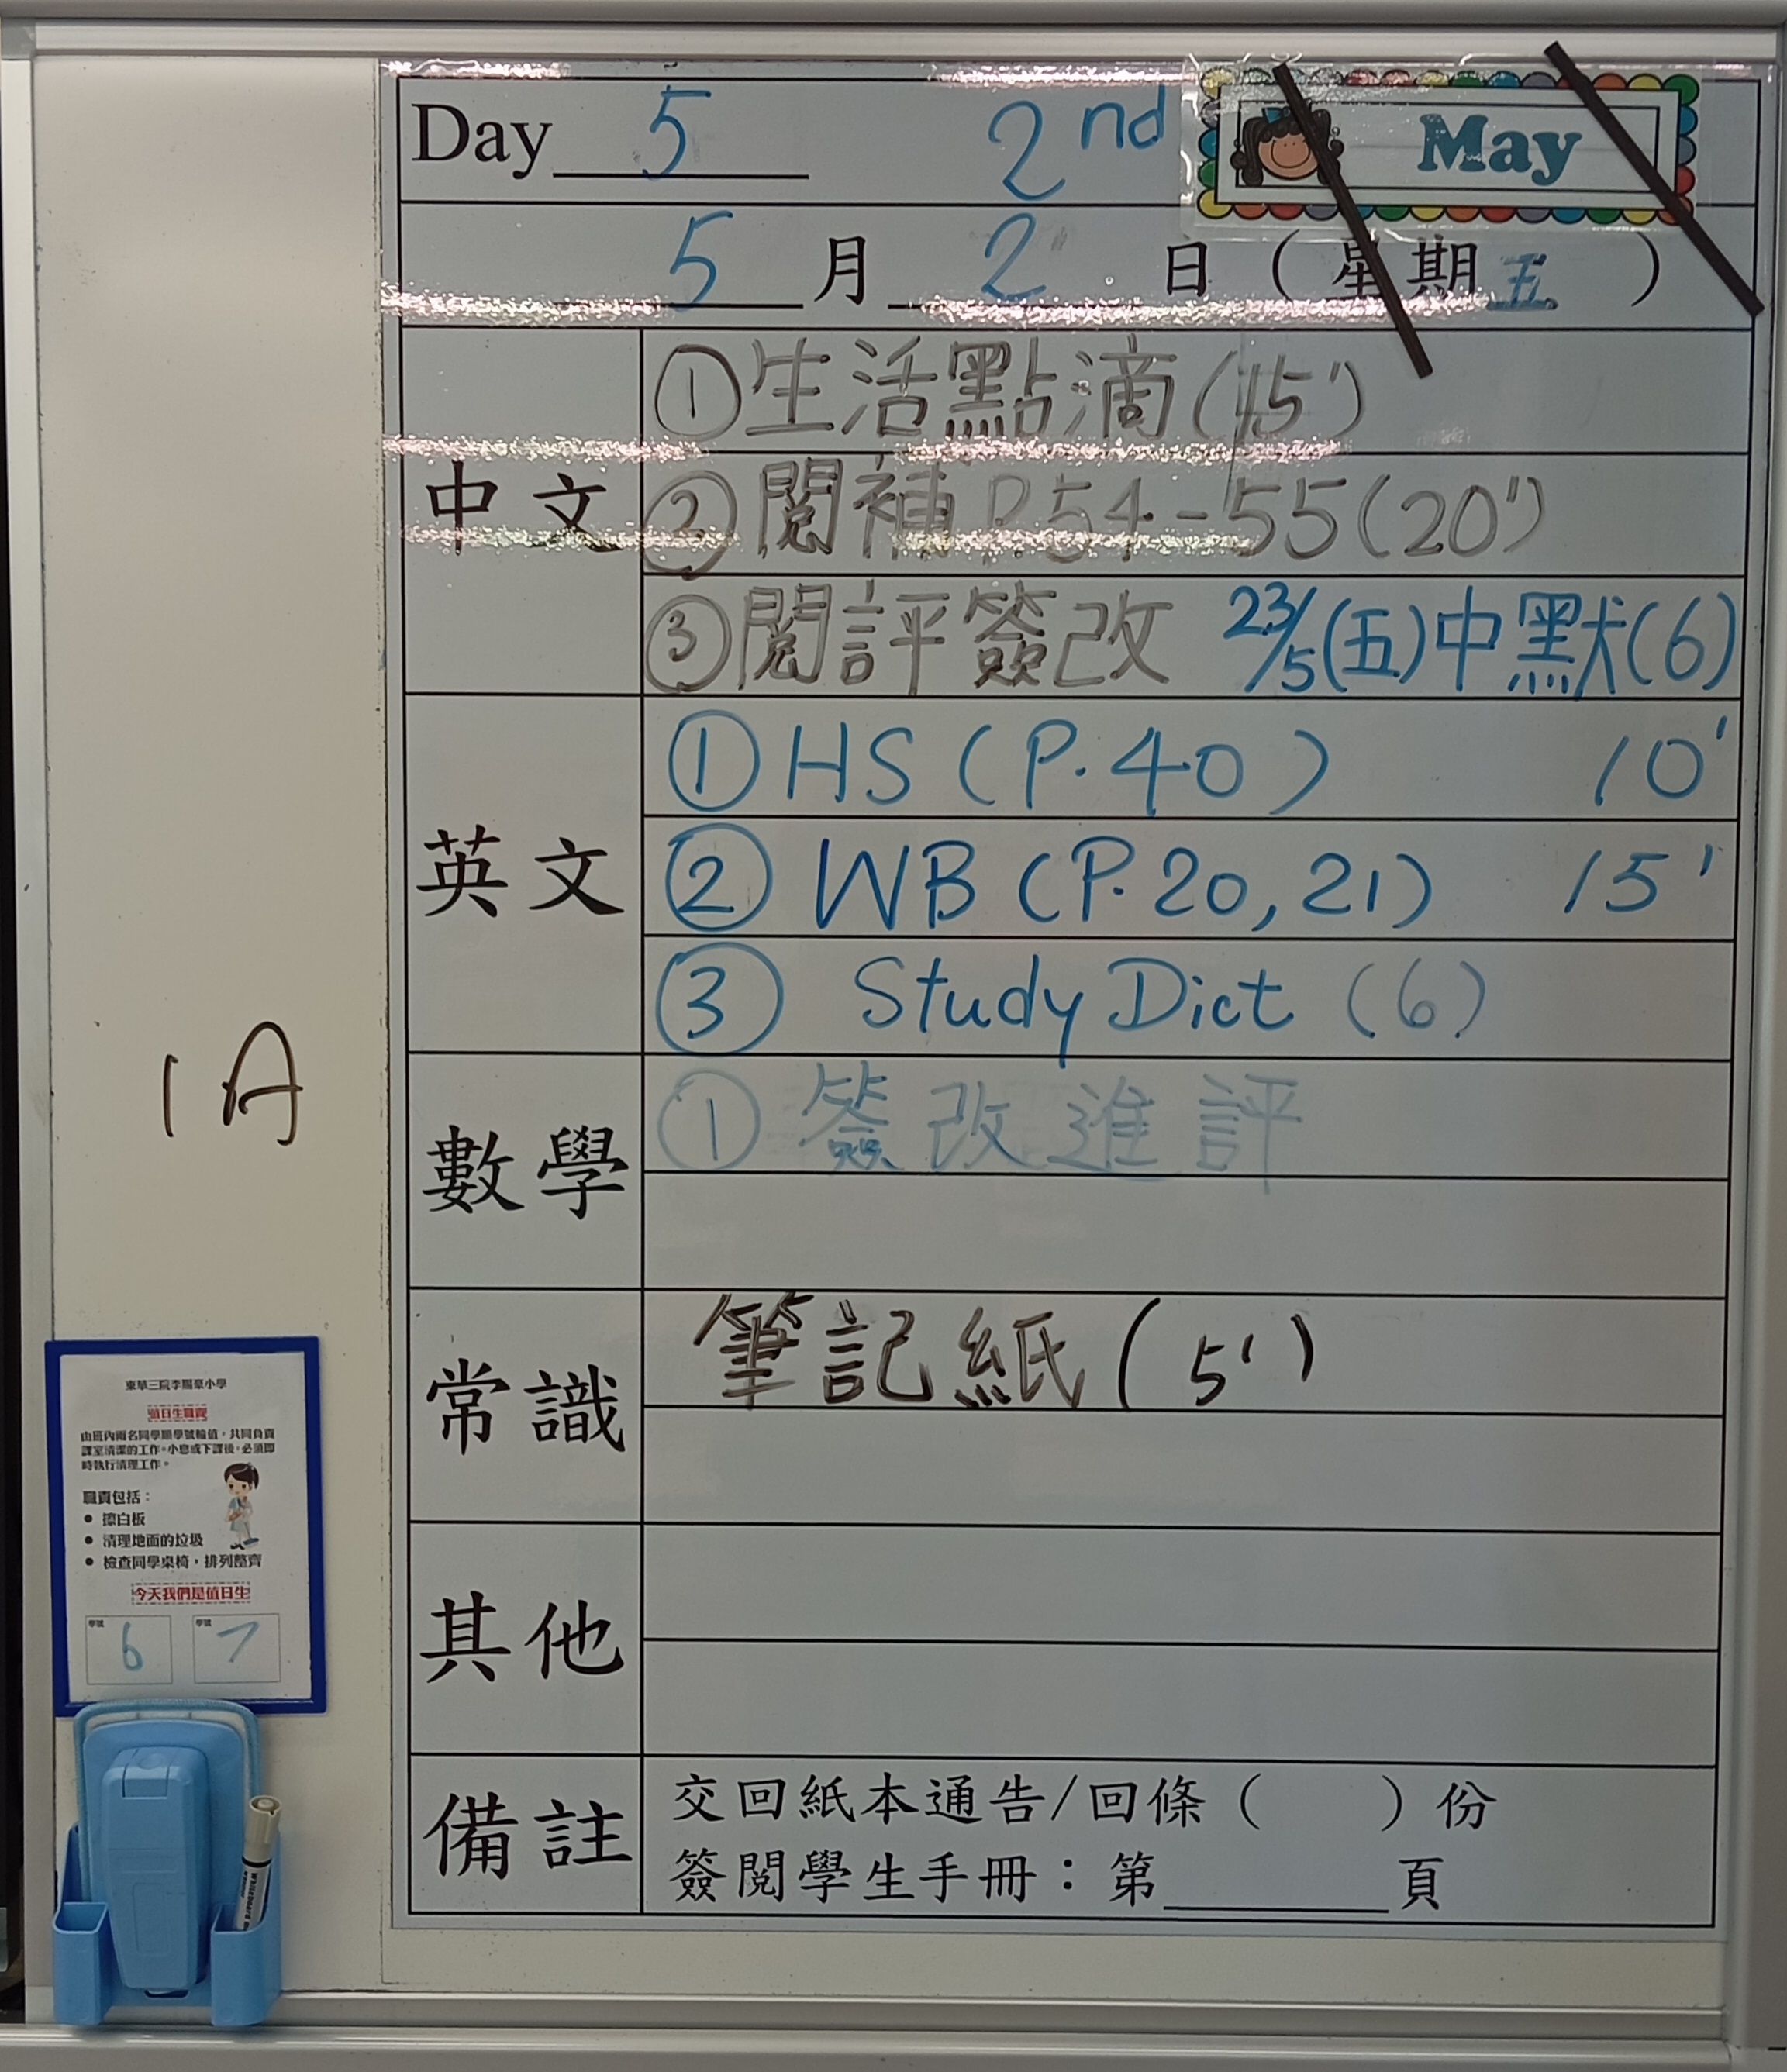 Day 5 2nd May
5月2日(星期五)
中文
①生活點滴(15')
②閱補P.54-55(20')
③閱評簽改 23/5(五)中默(6)
英文
①HS(P.40) 10'
②WB(P.20,21) 15'
③Study Dict (6)
數學
①簽改進評
常識
筆記紙(5')
其他
備註
交回紙本通告/回條( )份
簽閱學生手冊:第____頁
1A
值日生職責
由班內兩名同學順學號輪值,共同負責
課室清潔的工作。小息或下課後,必須即
時執行清理工作。
職責包括:
● 擦白板
● 清理地面的垃圾
● 檢查同學桌椅,排列整齊
今天我們是值日生
學號 6 學號 7